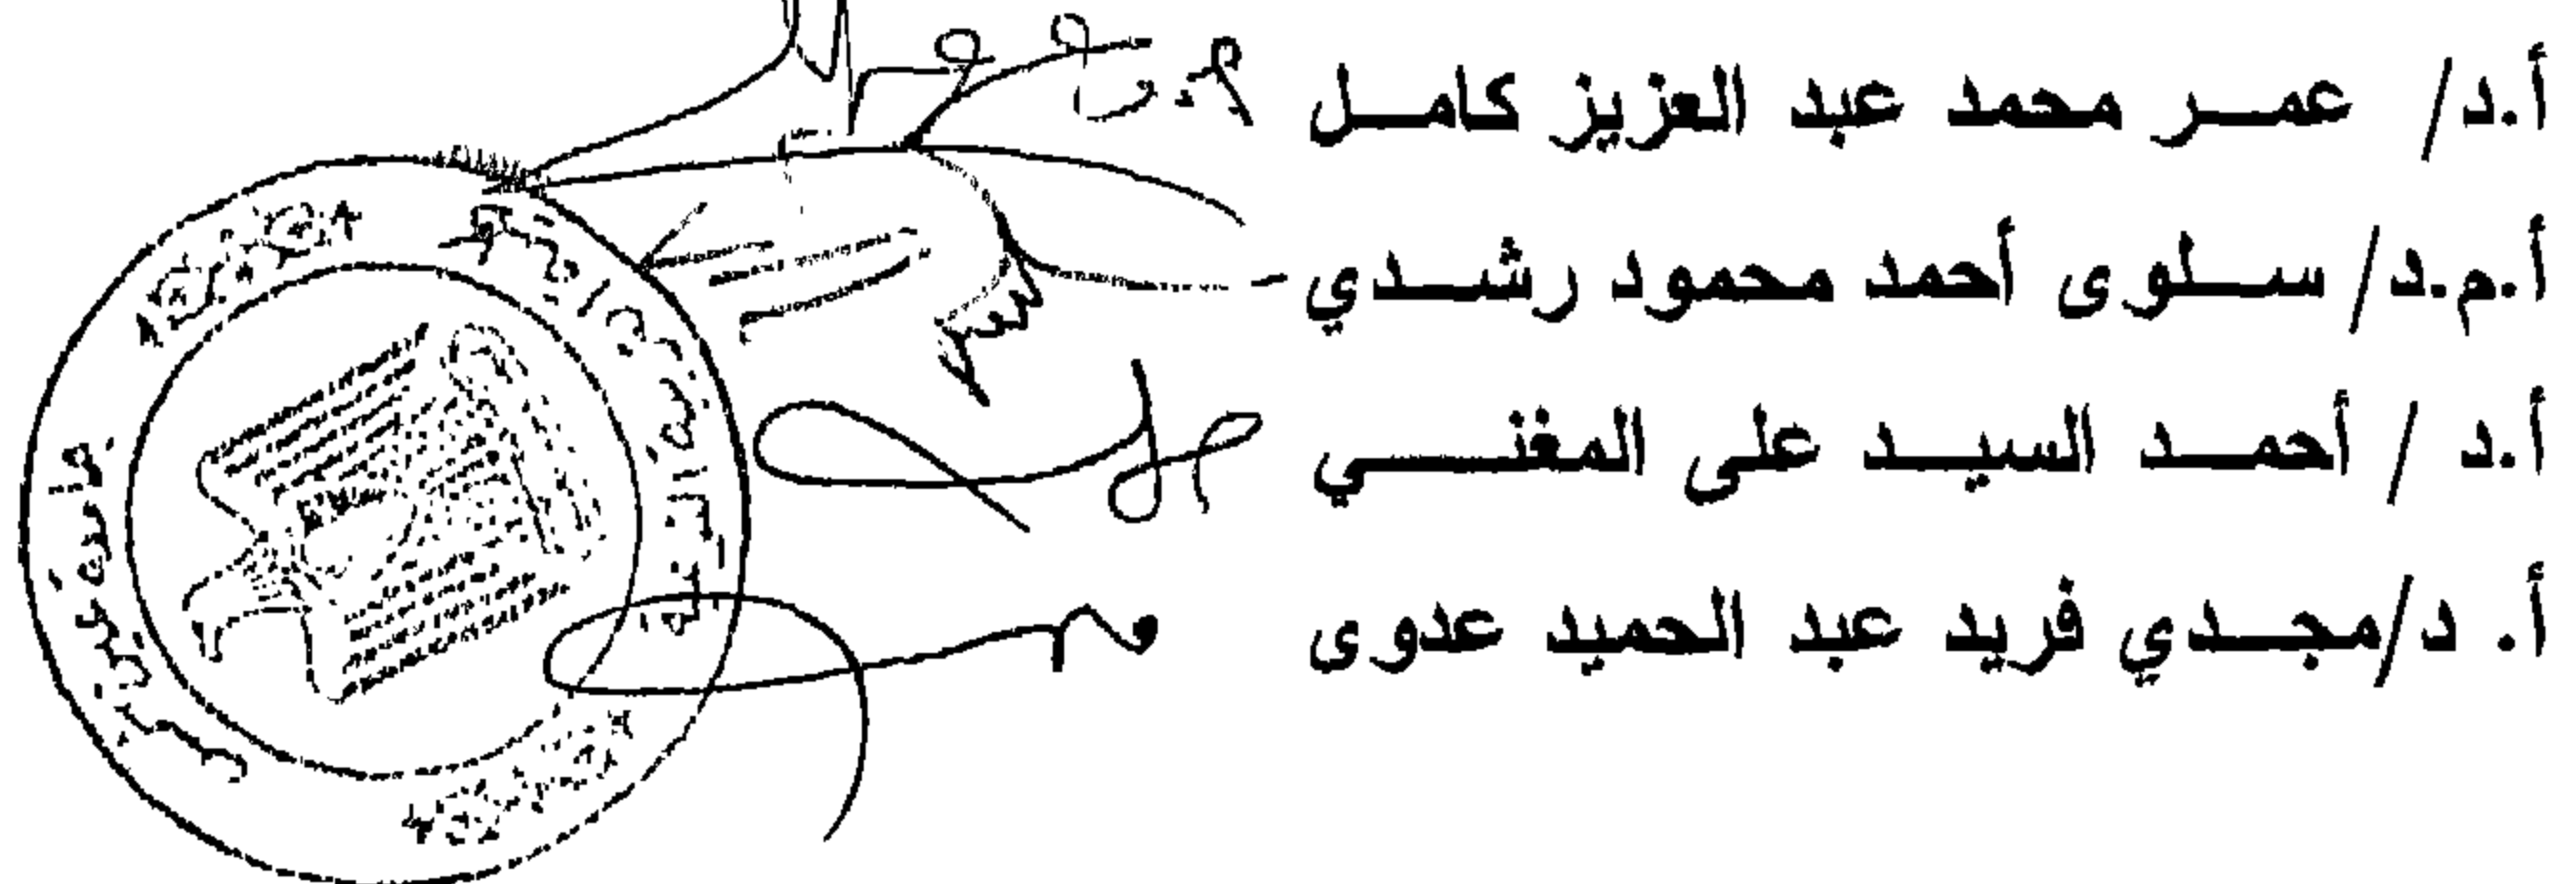 أ.د/ عمر محمد عبد العزيز كامل
أ.م.د/ سلوى أحمد محمود رشدي
أ.د / أحمد السيد على المغني
أ. د/مجدي فريد عبد الحميد عدوى